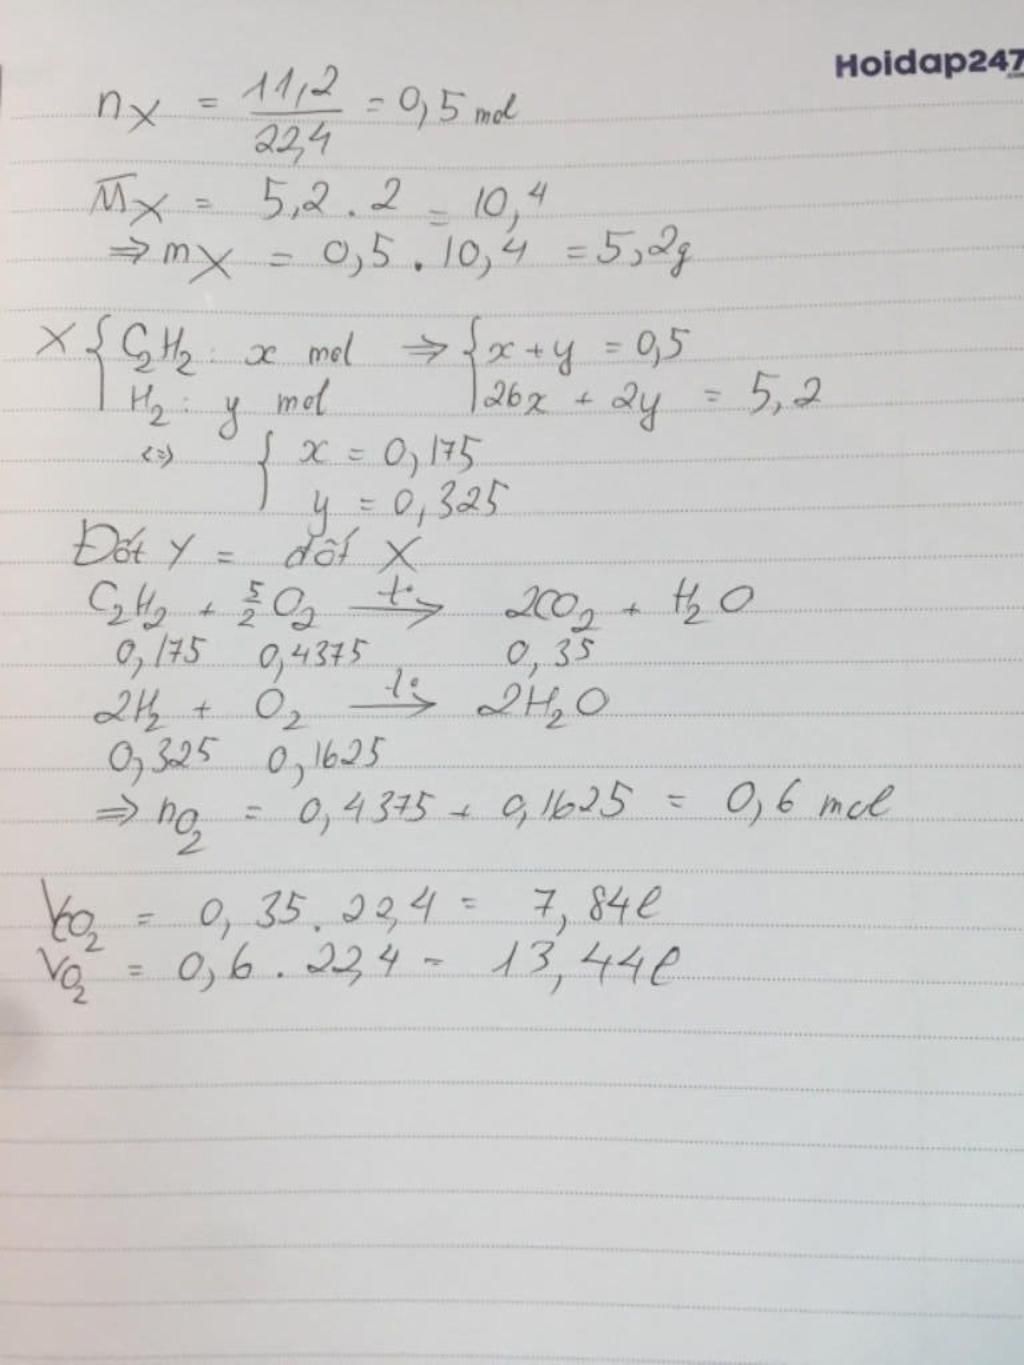 Hoidap247
.com
nX = 11,2/22,4 = 0,5 mol
M̅X = 5,2 . 2 = 10,4
⇒ mX = 0,5 . 10,4 = 5,2g
X { C₂H₂ : x mol ⇒ { x + y = 0,5
H₂ : y mol 26x + 2y = 5,2
⇔ { x = 0,175
y = 0,325
Đốt Y = đốt X
C₂H₂ + 5/2 O₂ —t°→ 2CO₂ + H₂O
0,175 0,4375 0,35
2H₂ + O₂ —t°→ 2H₂O
0,325 0,1625
⇒ nO₂ = 0,4375 + 0,1625 = 0,6 mol
VCO₂ = 0,35 . 22,4 = 7,84l
VO₂ = 0,6 . 22,4 = 13,44l